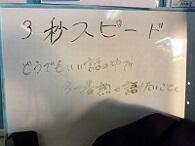 3秒スピード
どうでもいい話の中で
今一番熱く語りたいこと